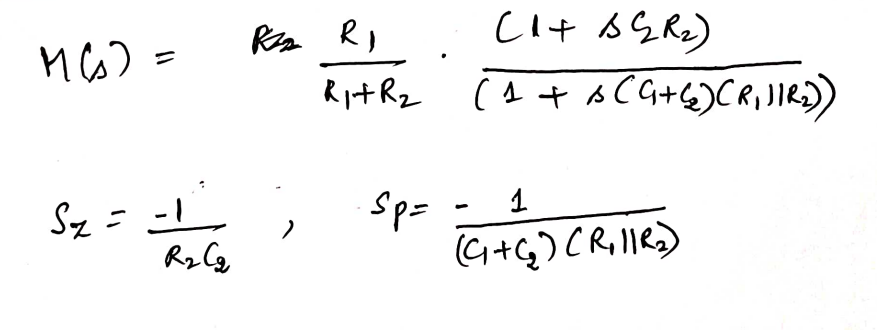 H(s) = R₁ / (R₁+R₂) · (1 + sC₂R₂) / (1 + s(C₁+C₂)(R₁||R₂))
S_z = -1 / (R₂C₂) , S_p = - 1 / ((C₁+C₂)(R₁||R₂))